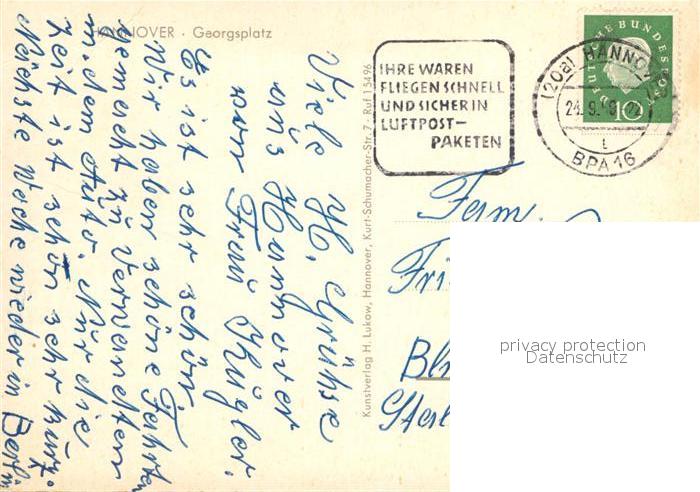 HANNOVER · Georgsplatz
Viele H. Grüsse
aus Hannover
von Frau Kügler.
Es ist sehr schön.
Wir haben schöne Fahrten
gemacht zu Verwandten
m. dem Auto. Nur die
Zeit ist schon sehr kurz.
Nächste Woche wieder in Berlin
Kunstverlag H. Lukow, Hannover, Kurt-Schumacher-Str. 7 · Ruf 15496
IHRE WAREN
FLIEGEN SCHNELL
UND SICHER IN
LUFTPOST–
PAKETEN
(20a) HANNOV
BPA 16
DEUTSCHE BUNDESPOST
10
Fam.
Fri
Bl
privacy protection
Datenschutz